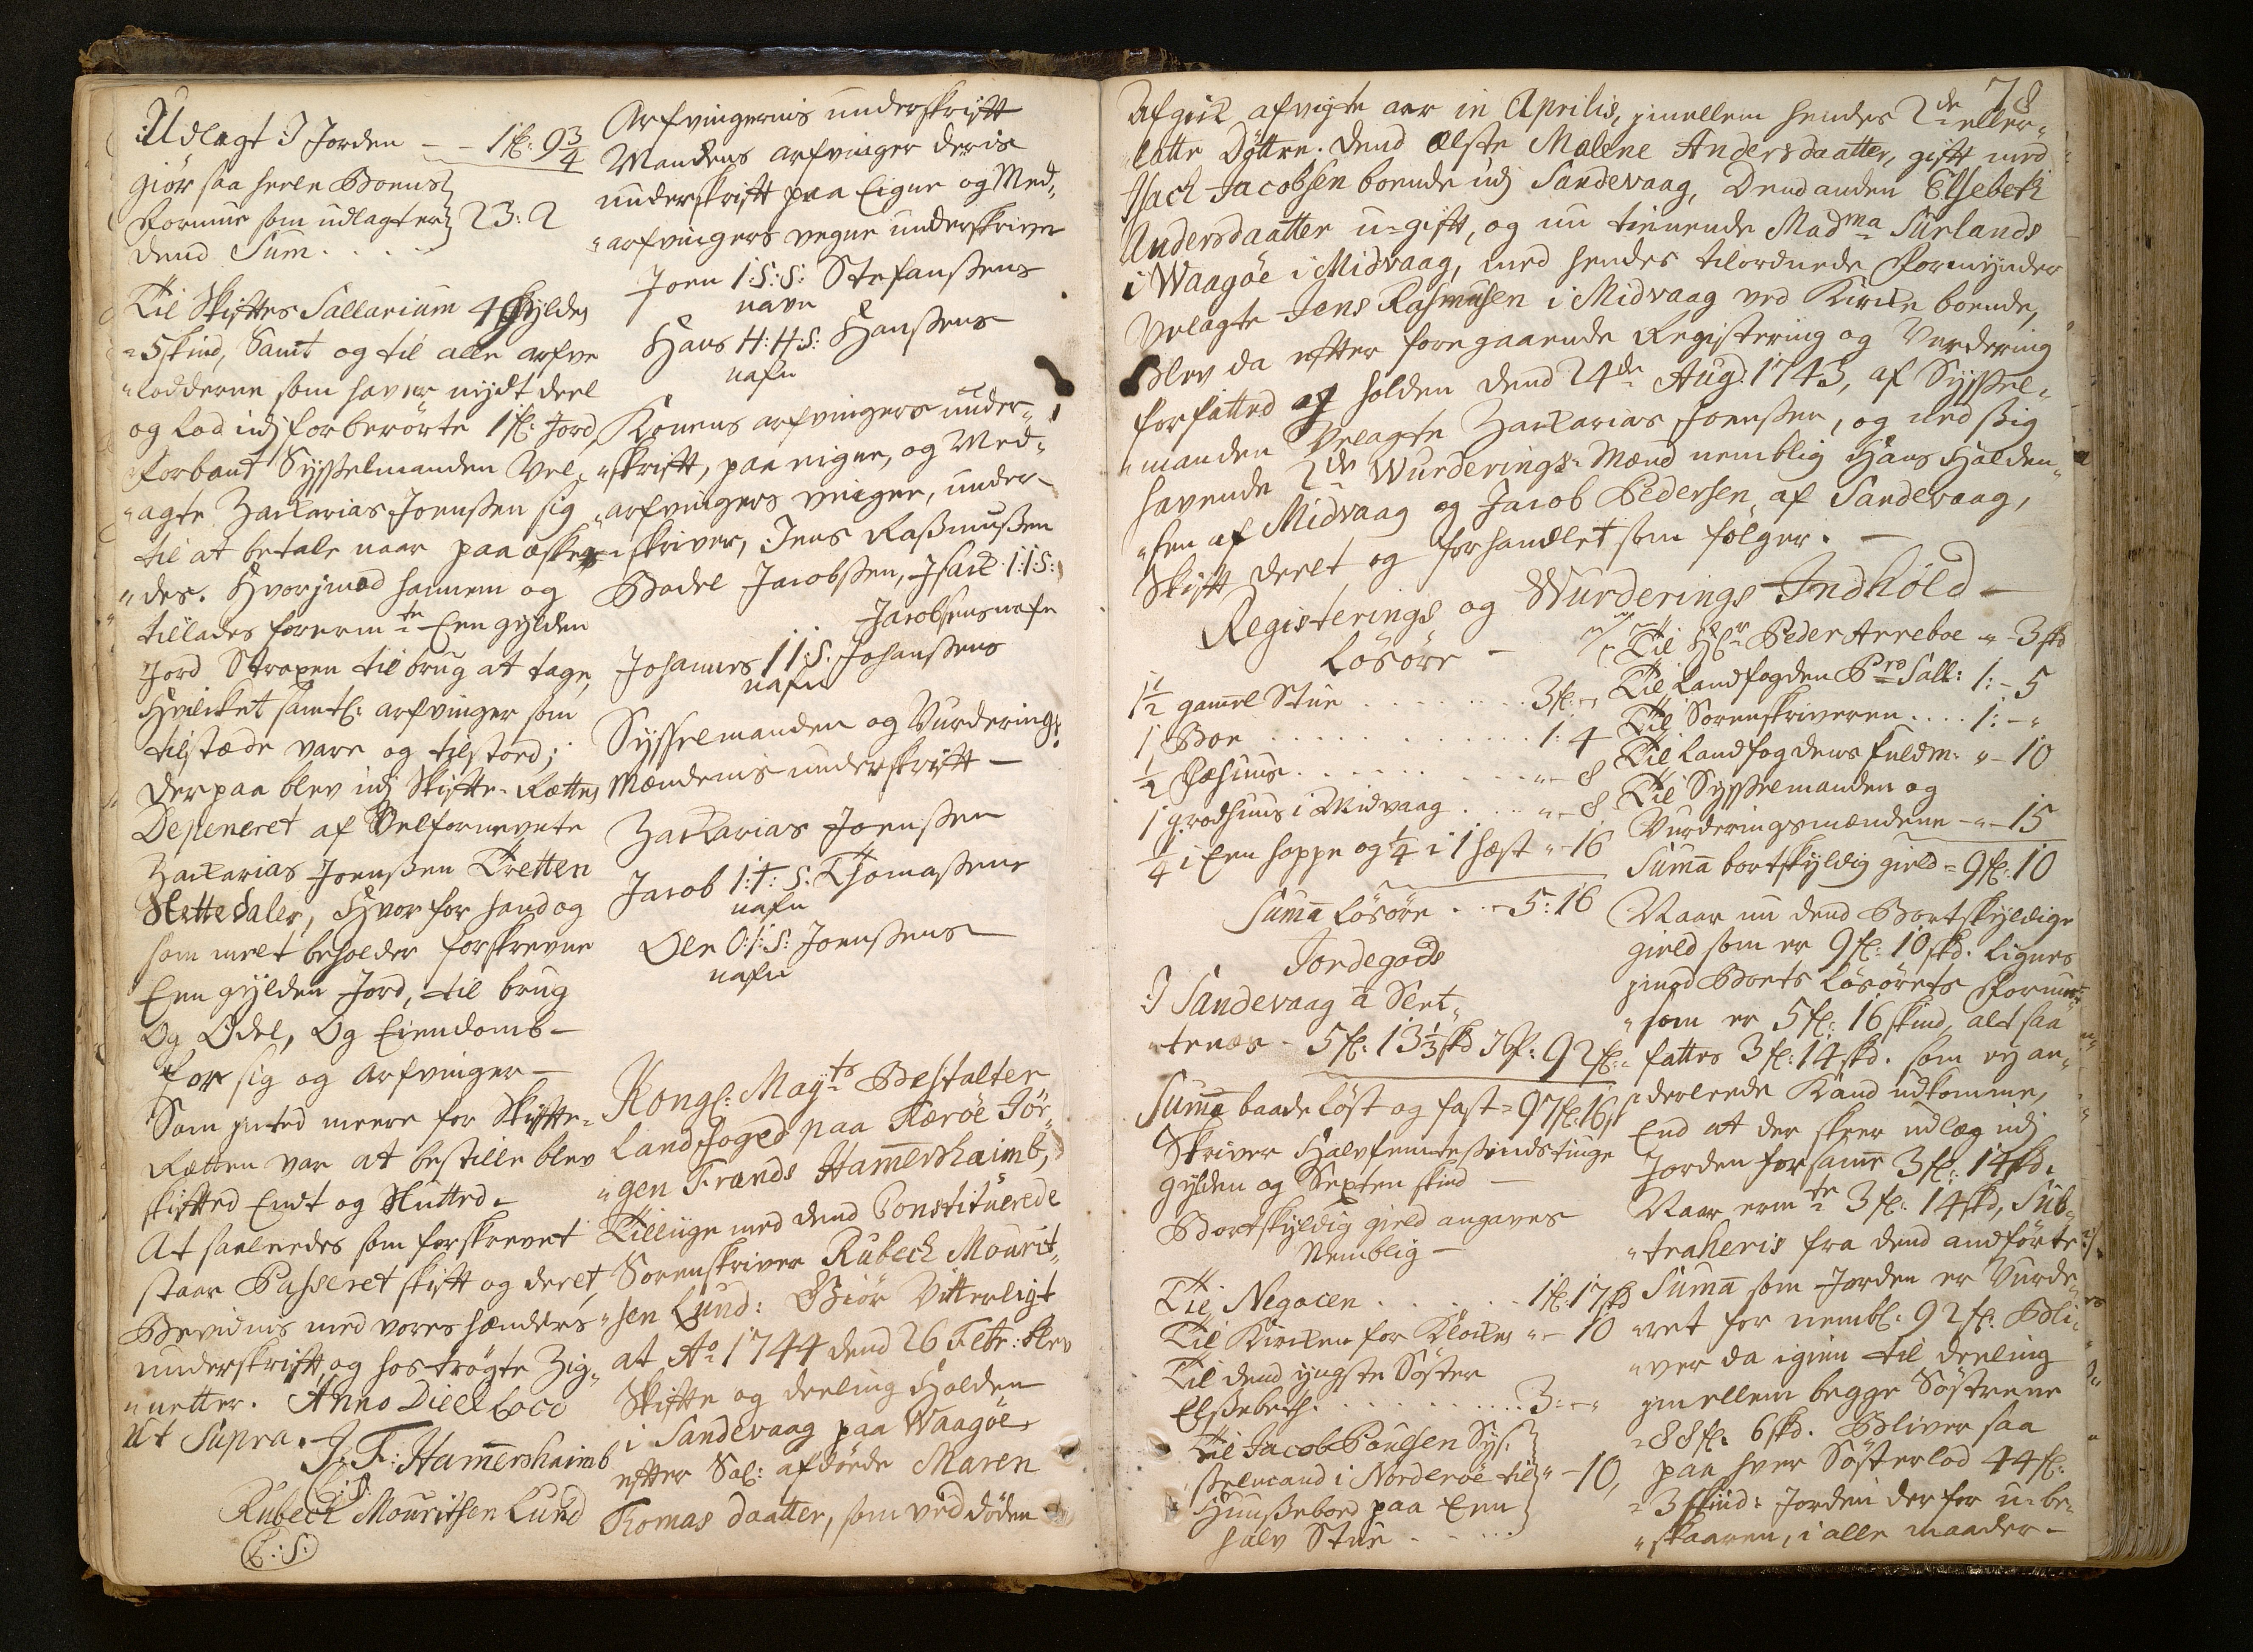 Udlagt I Jorden - - 1 fl: 9 3/4
giör saa heele Boens
Formue som udlagt er 23: 2
dend Sum . . . .
Til Skiftes Sallarium 4 Gylden
5 skind, Samt og til alle arfve
"lodderne som haver nydt deel
og lod udj forberörte 1 fl: Jord,
forbant Sysselmanden Vel-
"agte Zackarias Joenssen sig
til at betale naar paa æskes
"des. Hvorjmod hannem og
tillades forermte Een gylden
Jord Straxen til brug at tage,
Hvilcket samtl: arfvinger som
tilstæde vare og tilstoed;
Der paa blev udj Skifte-Rætten
Deponeret af Velfornevnte
Zackarias Joenssen Tretten
Slettedaler, Hvor for hand og
som melt beholder forskrevne
Een gylden Jord, til brug
Og Odel, Og Eiendomb-
for sig og Arfvinger-
Som inted meere for Skifte-
Rætten var at bestille blev
skifted Endt og Slutted-
At saaleedes som forskrevet
staar Passeret skift og deelt,
Bevidnis med vores hænders
underskrift, og hos trögte Zig-
"netter. Anno Die & Loco
Ut Supra.
J: F: Hamershaimb
(L: S:)
Rubeck Mouritsen Lund
(L: S:)
Arfvingernis underskrift
Mandens arfvinger deris
underskrift paa Eigne og Med-
"arfvingers vegne underskriver
Joen I: S: S: Stefanssens
navn
Hans H: H: S: Hanssens
nafn
Konens arfvingers under-
"skrift, paa eigne, og Med-
"arfvingers veigne, under-
"skriver, Jens Rassmussen
Bodel Jacobssen, Isack I: I: S:
Jacobsens nafn
Johannes I I: S: Johanssens
nafn
Sysselmanden og Vurderings
Mændenis underskrift-
Zackarias Joenssen
Jacob I: T: S: Thomassens
nafn
Ole O: I: S: Joenssens
nafn
Kongl: Mayts Bestalter
Landfoged paa Færöe Jör-
"gen Frands Hamershaimb,
Tilliige med dend Constituerede
Sorenskriver Rubeck Mourit-
"sen Lund: Giör Vitterligt
at Ao 1744 dend 26 Febr: blev
Skifte og deeling Holden
i Sandevaag paa Waagöe
efter Sal: afdöde Maren
Thomas daatter, som ved döden
78
Afgick afvigte aar in Aprilis, jmellem hendes 2de efter-
"latte Döttre. dend Elste Malene Andersdaatter, gift med
Isach Jacobsen boende udj Sandevaag, Dend anden Elsebeth
Andersdaatter u-gift, og nu tienende Madma Surlands
i Waagöe i Midvaag, med hendes tilordnede Formynder
Velagte Jens Rasmusen i Midvaag ved Kircke boende,
blev da efter foregaaende Registering og Vurdering
forfatted og holden dend 24de Aug: 1743, af Syssel-
"manden Velagte Zackarias Joenssen, og med sig
havende 2de Wurderings-Mænd nemblig Hans Halden-
"sen af Midvaag og Jacob Pedersen af Sandevaag,
Skift deelt og forhandlet som fölger. -
Registerings og Wurderings Indhold -
Lösöre -
1 1/2 gamel Stue . . . . . . . 3 fl: -
1 Boe . . . . . . . . . . 1: 4
1/2 Fæhuus . . . . . . . . " - 8
1 grodhuus i Midvaag . . . " - 8
1/4 i Een hoppe og 1/4 i 1 hæst " - 16
Suma Lösöre . . - 5: 16
Jordegods
I Sandevaag a Sent-
"tenæs - 5 fl: 13 1/3 skd 92 fl:
Suma baade Löst og fast = 97 fl: 16 s
Skriver Halvfemtesindstiuge
gylden og Sexten skind -
Bortskyldig gield angaves
Nemblig -
Til Negocen . . . . . . 1 fl: 17 skd
Til Kircken for Klocken " - 10
Til dend yngste Söster
Elssebeth . . . . . . . . . 3: - "
Til Jacob Poulsen Sys-
"selmand i Norderöe til " - 10,
Huussebord paa Een
halv Stue . . . . .
Til Hr Peder Arreboe " - 3 skd
Til Landfogden Pro Sall: 1: - 5
Til Sorenskriveren . . . . 1: - "
Til Landfogdens fuldm: " - 10
Til Sysselmanden og
Vurderingsmændene - " - 15
Suma bortskyldig gield = 9 fl: 10
Naar nu dend Bortskyldige
gield som er 9 fl: 10 skd. lignes
jmod Boets Lösörets Formue
"som er 5 fl: 16 skind, altsaa
fattes 3 fl: 14 skd. som ey an-
"derleede Kand udkomme,
End at der skeer udlæg udj
Jorden for samme 3 fl: 14 skd.
Naar ermte 3 fl: 14 skd, Sub-
"traheris fra dend andförte
Suma som Jorden er Vurde-
"ret for nembl: 92 fl: Bli-
"ver da igien til deeling
jmellem begge Söstrene
= 88 fl: 6 skd. Bliver saa
paa hver Sösterlod 44 fl:
= 3 skind: Jorden der for u-be-
"skaaren, i alle maader -